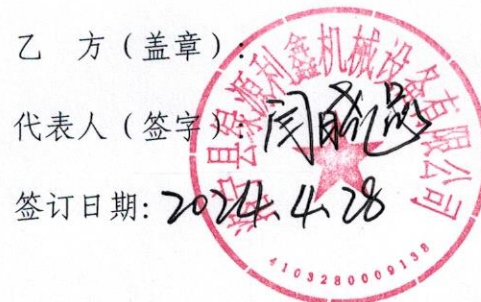 乙 方（盖章）：
代表人（签字）：闫晓
签订日期：2024.4.28
洛宁县宏源利鑫机械设备有限公司
4103280009138